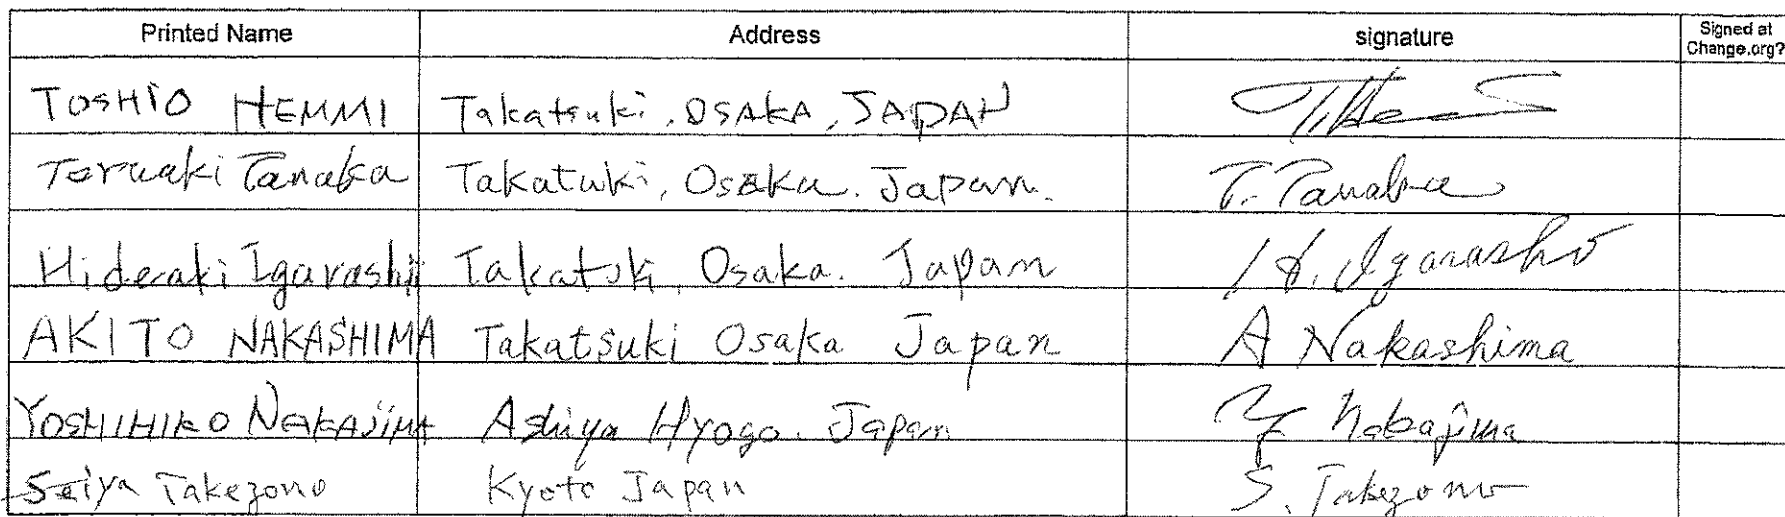 Printed Name Address signature Signed at Change.org?
TOSHIO HEMMI Takatsuki, OSAKA, JAPAN
Teruaki Tanaka Takatuki, Osaka. Japan. T. Tanaka
Hideaki Igarashi Takatski, Osaka. Japan H. Igarashi
AKITO NAKASHIMA Takatsuki Osaka Japan A Nakashima
YOSHIHIKO NAKAJIMA Ashiya Hyogo. Japan Y Nakajima
Seiya Takezono Kyoto Japan S. Takezono